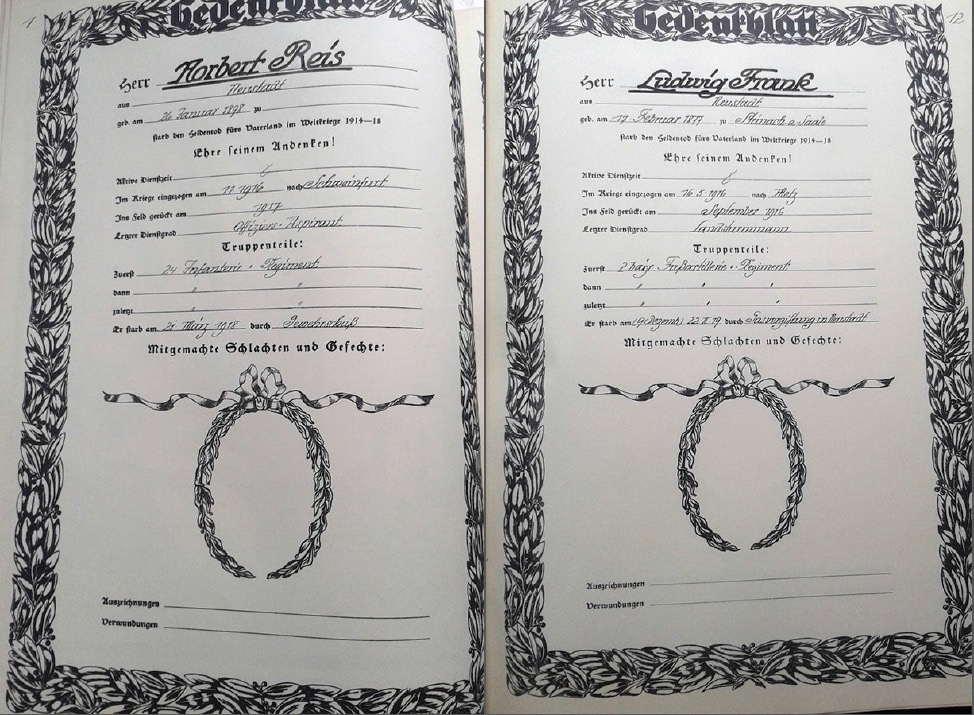 Gedenkblatt
Herr Norbert Reis
aus Neustadt
geb. am 26 Januar 1898 zu
starb den Heldentod fürs Vaterland im Weltkriege 1914–18
Ehre seinem Andenken!
Aktive Dienstzeit
Im Kriege eingezogen am 11 1916 nach Schweinfurt
Ins Feld gerückt am 1917
Letzter Dienstgrad Offiziers-Aspirant
Truppenteile:
Zuerst 24 Infanterie-Regiment
dann " "
zuletzt " "
Er starb am 21 März 1918 durch Gewehrschuß
Mitgemachte Schlachten und Gefechte:
Auszeichnungen
Verwundungen
12
Gedenkblatt
Herr Ludwig Frank
aus Neustadt
geb. am 17 Februar 1877 zu Steinach a. Saale
starb den Heldentod fürs Vaterland im Weltkriege 1914–18
Ehre seinem Andenken!
Aktive Dienstzeit
Im Kriege eingezogen am 16 5 1916 nach Metz
Ins Feld gerückt am September 1916
Letzter Dienstgrad Landsturmmann
Truppenteile:
Zuerst 2 bayr. Fußartillerie-Regiment
dann " " "
zuletzt " " "
Er starb am 22 II 19 durch Gasvergiftung in
Mitgemachte Schlachten und Gefechte:
Auszeichnungen
Verwundungen